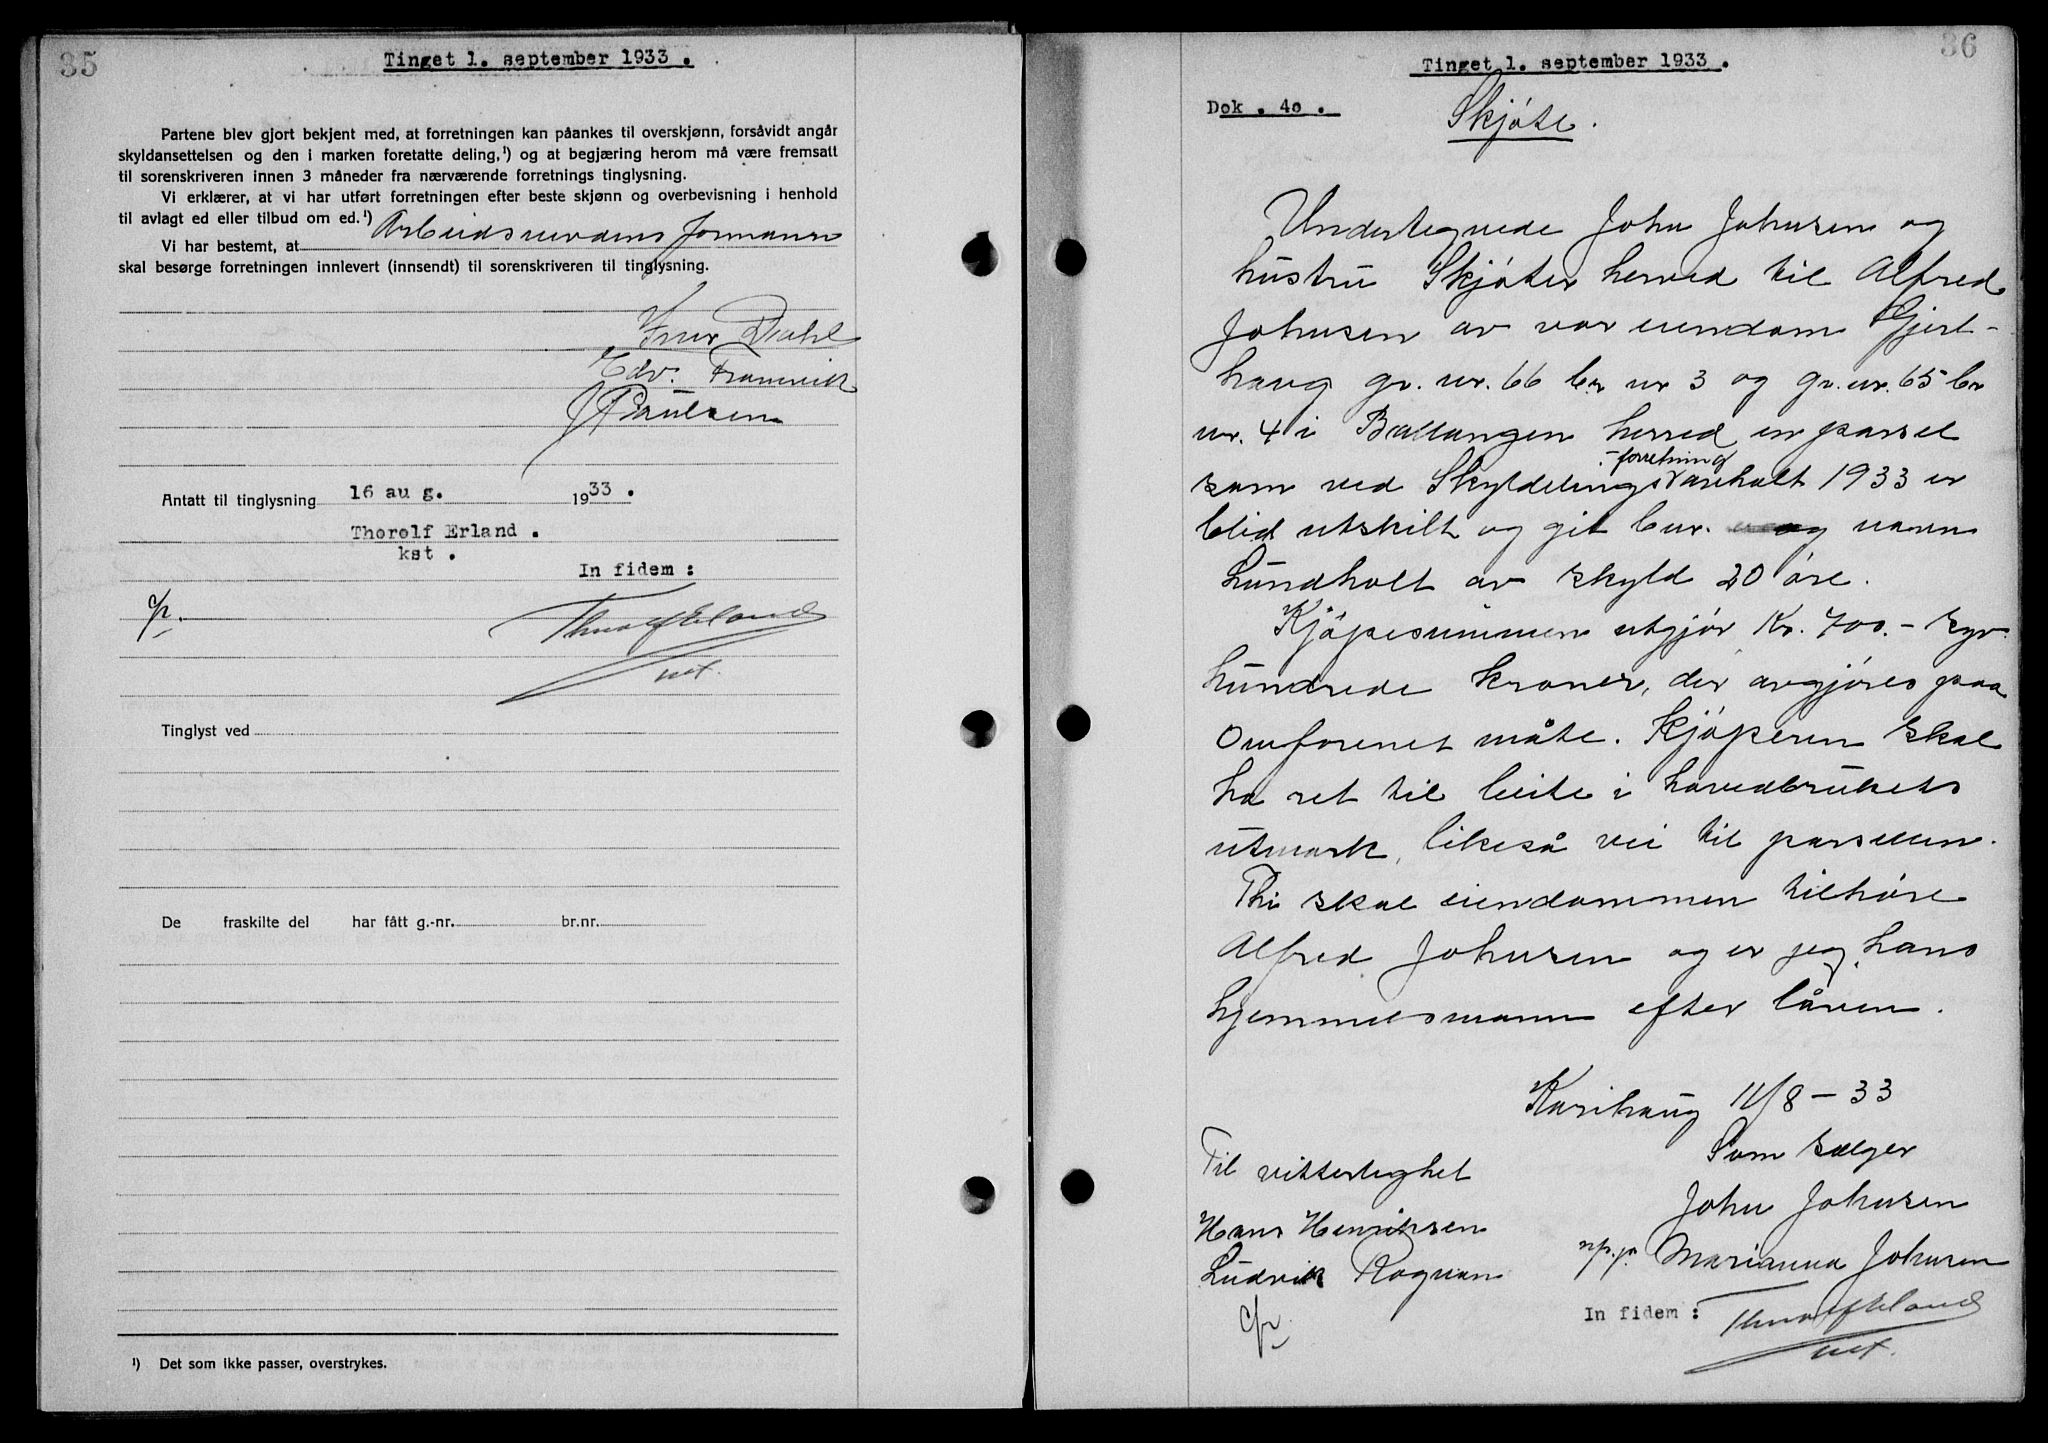 35
Tinget 1. september 1933 .
Partene blev gjort bekjent med, at forretningen kan påankes til overskjønn, forsåvidt angår
skyldansettelsen og den i marken foretatte deling,¹) og at begjæring herom må være fremsatt
til sorenskriveren innen 3 måneder fra nærværende forretnings tinglysning.
Vi erklærer, at vi har utført forretningen efter beste skjønn og overbevisning i henhold
til avlagt ed eller tilbud om ed.¹)
Vi har bestemt, at Arbeidsnevdens formann
skal besørge forretningen innlevert (innsendt) til sorenskriveren til tinglysning.
Dahl
Edv. Framvik
J Paulsen
Antatt til tinglysning 16 aug. 1933 .
Thorolf Erland .
kst .
In fidem :
Thorolf Erland
Tinglyst ved
De fraskilte del har fått g.-nr. br.nr.
¹) Det som ikke passer, overstrykes.
36
Tinget 1. september 1933 .
Dok . 40 .
Skjøte.
Undertegnede John Johnsen og
hustru Skjøter herved til Alfred
Johnsen av vor eiendom Gjert-
haug gr. nr. 66 br. nr 3 og gr. nr. 65 br
nr. 4 i Ballangen herred en parsel
-forretning
som ved Skyldelings avholt 1933 er
blid utskilt og git bnr. og navn
Lundholt av skyld 20 øre.
Kjøpesummen utgjør Kr. 700.- syv
hundrede kroner, der avgjøres paa
Omforenet måte. Kjøperen skal
ha ret til beite i hovedbrukets
utmark, likeså vei til parsellen.
Thi skal eiendommen tilhøre
Alfred Johnsen og er jeg hans
hjemmelsmann efter låven.
Karihaug 11/8 - 33
Som sælger
Til vitterlighet
John Johnsen
Hans Henriksen
m.p.p. Marianna Johnsen
Ludvik Rognan
In fidem :
Thorolf Erland